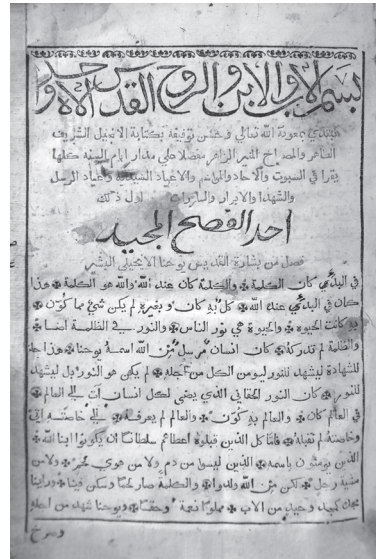 بسم الاب والابن والروح القدس الاه واحد
نبتدي بمعونة الله تعالي وحسن توفيقه بكتابة الانجيل الشريف
الطاهر والمصباح المنير الزاهر مفصلا علي مدار ايام السنه كلها
يقرا في السبوت والآحاد والاعياد السيديه واعياد الرسل
والشهدا والابرار اول ذلك
احد الفصح المجيد
فصل من بشارة القديس يوحنا الانجيلي البشير
في البدئ كان الكلمة والكلمة كان عند الله والله هو الكلمة هذا
كان في البدئ عند الله كل به كان وبغيره لم يكن شئ مما كون
به كانت الحيوة والحيوة هي نور الناس والنور في الظلمة اضا
والظلمة لم تدركه كان انسان مرسل من الله اسمه يوحنا هذا جا
للشهادة ليشهد للنور ليومن الكل من اجله لم يكن هو النور بل ليشهد
للنور كان نور الحقاني الذي يضي لكل انسان ات الي العالم
في العالم كان والعالم به كون والعالم لم يعرفه الي خاصته اتي
وخاصته لم تقبله فاما كل الذين قبلوه اعطاهم سلطانا ان يكونوا ابنا الله
الذين يومنون باسمه الذين ليسوا من دم ولا من هوي لحم ولا من
مشية رجل لكن من الله ولدوا والكلمة صار لحما وسكن فينا وراينا
مجده كمجد وحيد من الاب مملوا نعمة وحقا ويوحنا شهد من اجله
وصرخ